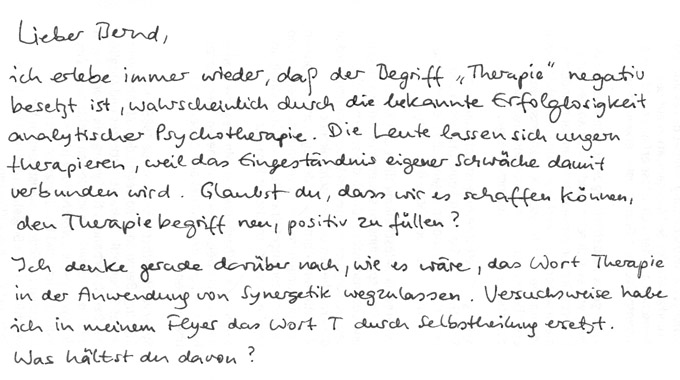 Lieber Bernd,
ich erlebe immer wieder, daß der Begriff „Therapie“ negativ
besetzt ist, wahrscheinlich durch die bekannte Erfolglosigkeit
analytischer Psychotherapie. Die Leute lassen sich ungern
therapieren, weil das Eingeständnis eigener Schwäche damit
verbunden wird. Glaubst du, dass wir es schaffen können,
den Therapiebegriff neu, positiv zu füllen?
Ich denke gerade darüber nach, wie es wäre, das Wort Therapie
in der Anwendung von Synergetik wegzulassen. Versuchsweise habe
ich in meinem Flyer das Wort T durch Selbstheilung ersetzt.
Was hältst du davon?